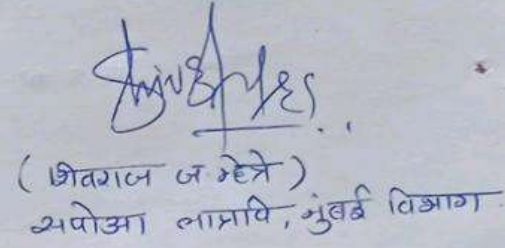 (शिवराज ज. म्हेत्रे)
सपोआ लाप्रवि, मुंबई विभाग